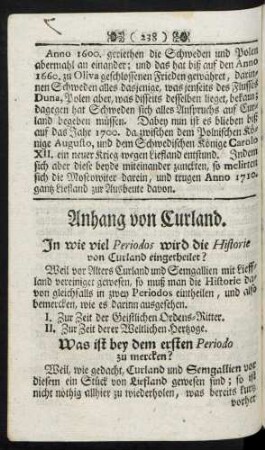 ( 238 )
Anno 1600. geriethen die Schweden und Polen
abermahl an einander; und das hat biß auf den Anno
1660. zu Oliva geschlossenen Frieden gewähret, darin-
nen Schweden alles dasjenige, was jenseits des Flusses
Duna, Polen aber, was disseits desselben lieget, bekam;
dagegen hat Schweden sich alles Anspruchs auf Cur-
land begeben müssen. Dabey nun ist es blieben biß
auf das Jahr 1700. da zwischen dem Polnischen Kö-
nige Augusto, und dem Schwedischen Könige Carolo
XII. ein neuer Krieg wegen Liefland entstund. Indem
sich aber diese beyde miteinander zanckten, so melirten
sich die Moscowiter darein, und trugen Anno 1710.
gantz Liefland zur Ausbeute davon.
Anhang von Curland.
In wie viel Periodos wird die Historie
von Curland eingetheilet?
Weil vor Alters Curland und Semgallien mit Lieff-
land vereiniget gewesen, so muß man die Historie da-
von gleichfalls in zwey Periodos eintheilen, und also
bemercken, wie es darinn ausgesehen.
I. Zur Zeit der Geistlichen Ordens-Ritter.
II. Zur Zeit derer Weltlichen Hertzoge.
Was ist bey dem ersten Periodo
zu mercken?
Weil, wie gedacht, Curland und Semgallien vor
diesem ein Stück von Liefland gewesen sind; so ist
nicht nöthig allhier zu wiederholen, was bereits kurtz
vorher